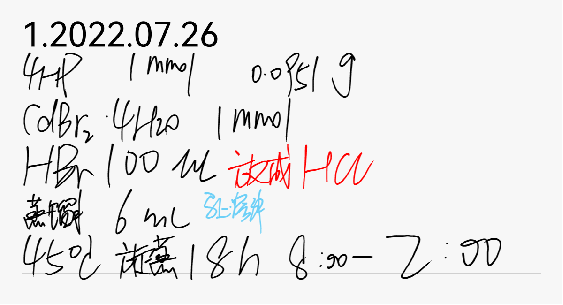 1.2022.07.26
4HP 1 mmol 0.0951 g
CdBr₂·4H₂O 1 mmol
HBr 100 uL 改成HCl
蒸馏 6 mL
45℃ 蒸 18h 8:00—2:00